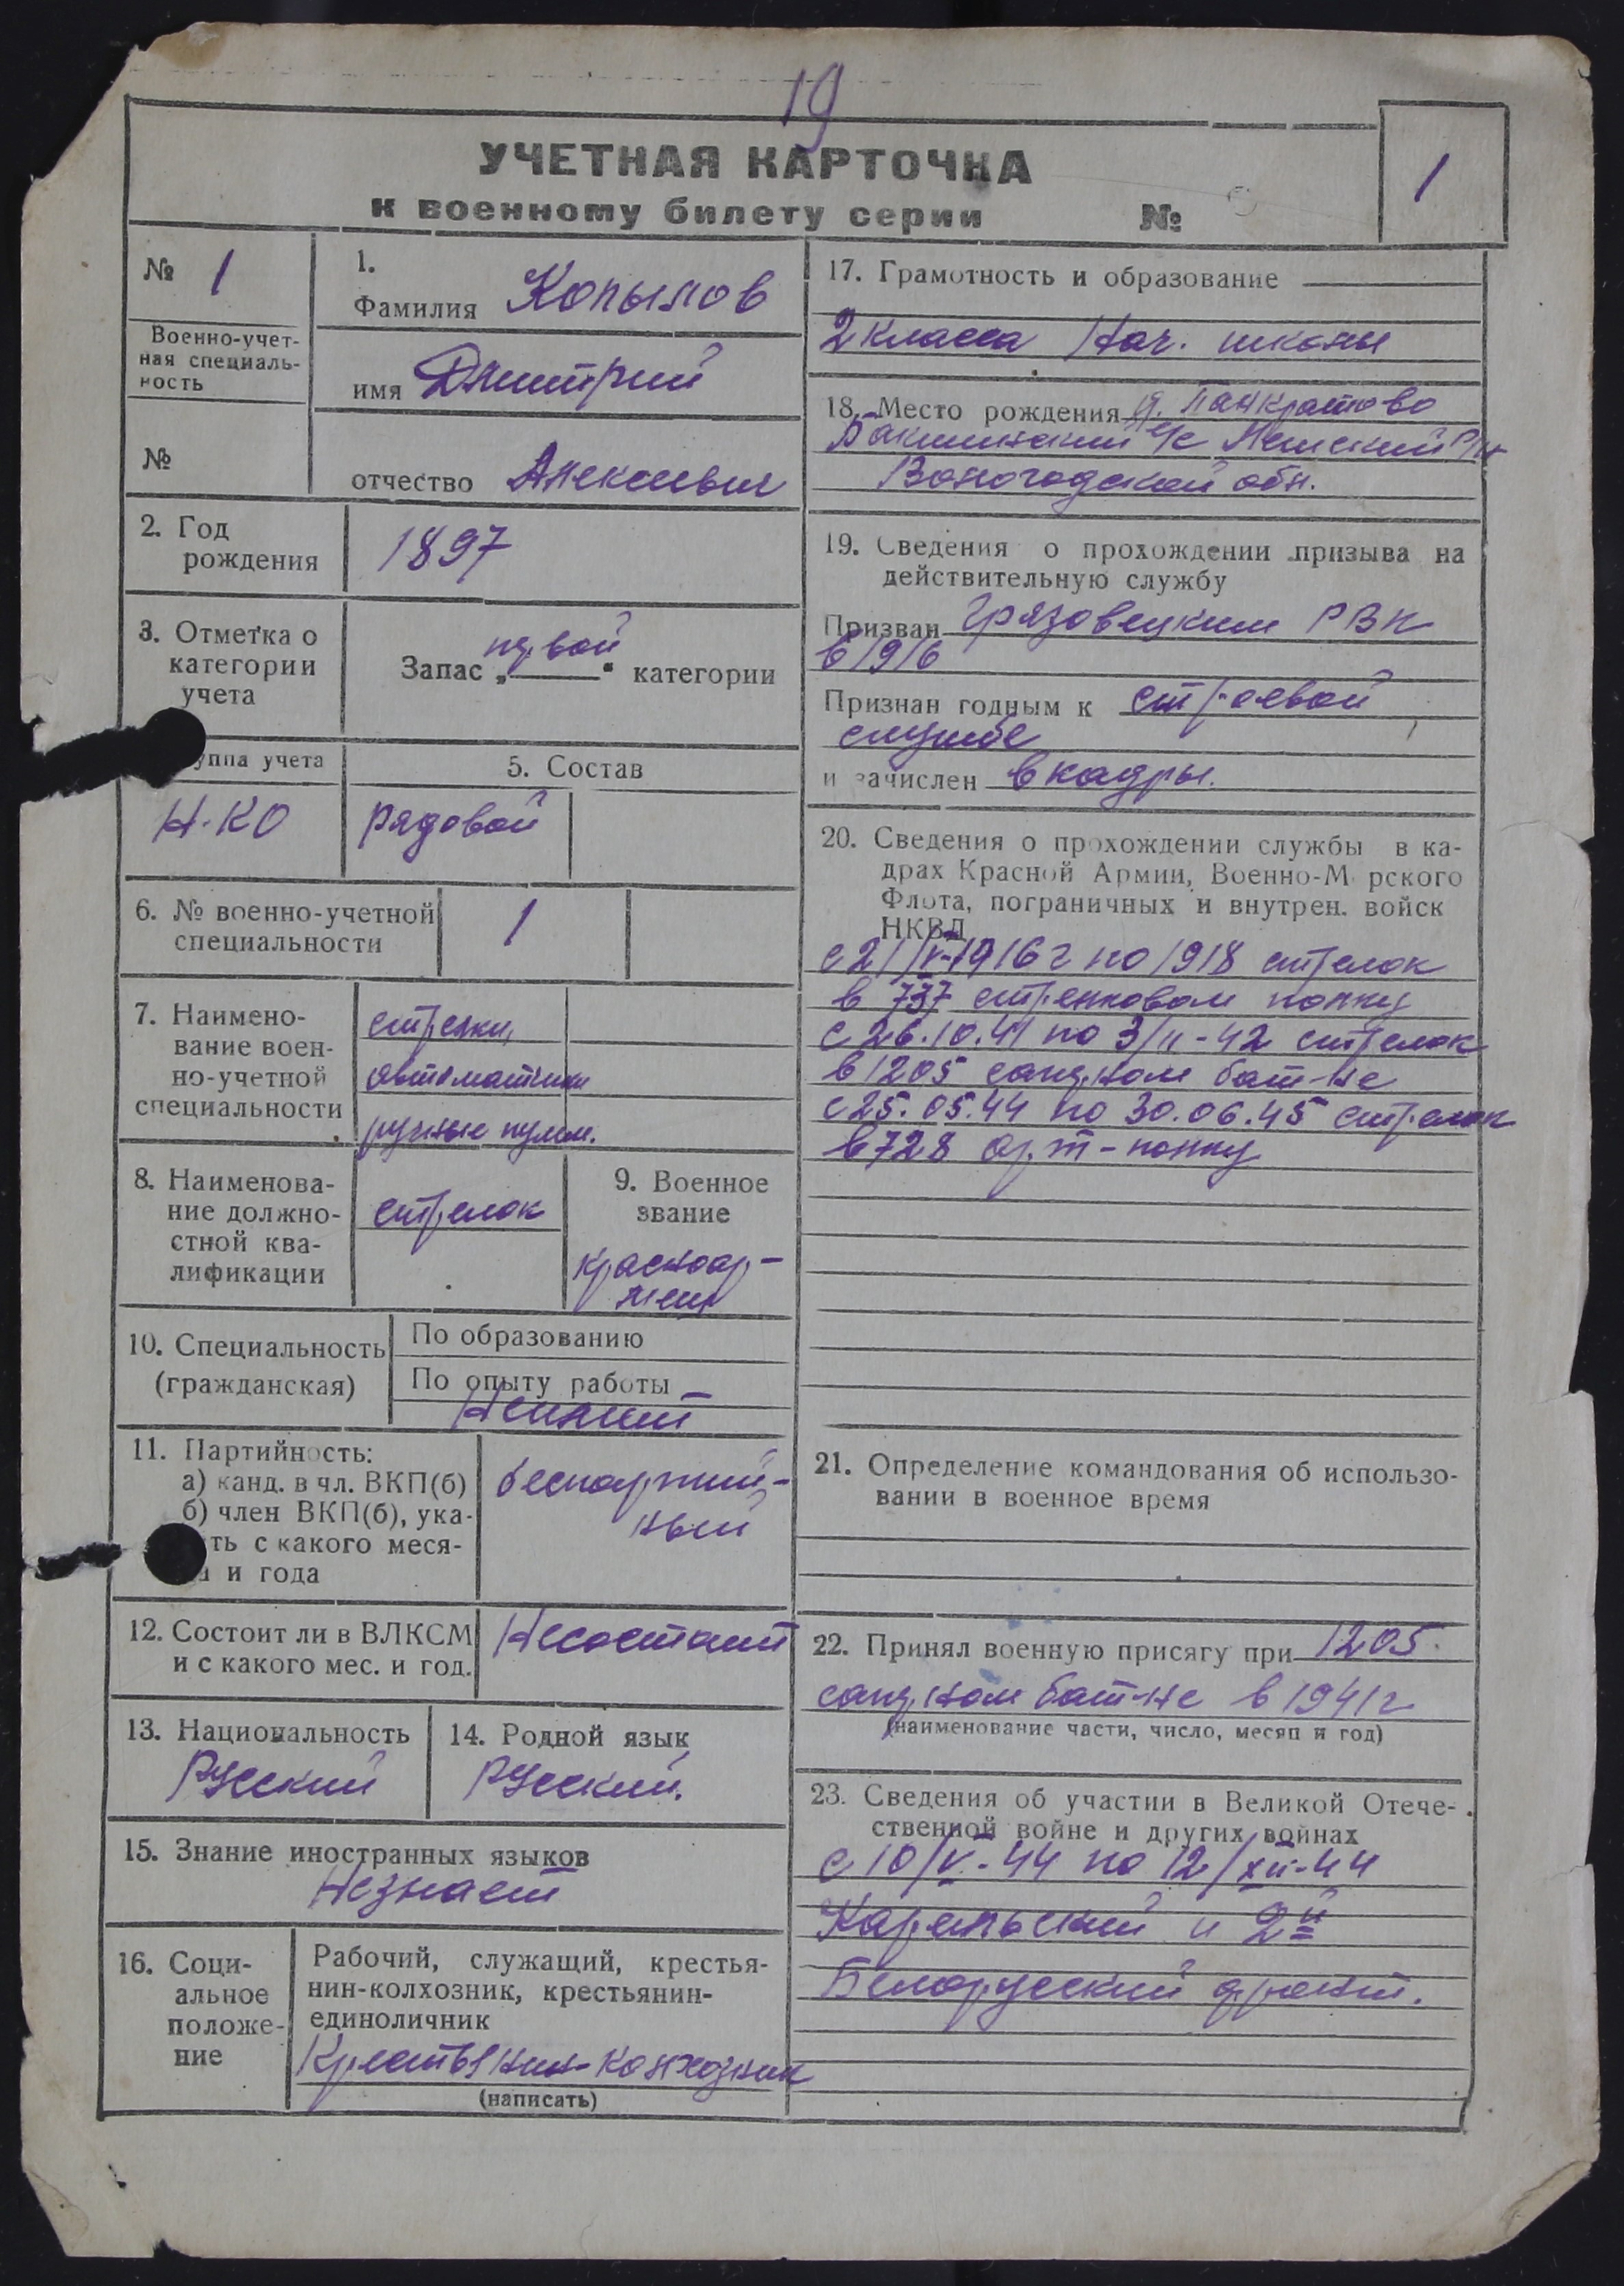 19
УЧЕТНАЯ КАРТОЧКА
к военному билету серии №
1
№ 1
Военно-учет-
ная специаль-
ность
№
1.
Фамилия Копылов
имя Дмитрий
отчество Алексеевич
2. Год
рождения
1897
3. Отметка о
категории
учета
Запас „первой“ категории
уппа учета
Н.КО
5. Состав
рядовой
6. № военно-учетной
специальности
1
7. Наимено-
вание воен-
но-учетной
специальности
стрелки,
автоматчики
ручные пулем.
8. Наименова-
ние должно-
стной ква-
лификации
стрелок
9. Военное
звание
красноар-
меец
10. Специальность
(гражданская)
По образованию
По опыту работы
Не имеет
11. Партийность:
а) канд. в чл. ВКП(б)
б) член ВКП(б), ука-
ть с какого меся-
и года
беспартий-
ный
12. Состоит ли в ВЛКСМ
и с какого мес. и год.
Не состоит
13. Национальность
Русский
14. Родной язык
Русский.
15. Знание иностранных языков
Не знает
16. Соци-
альное
положе-
ние
Рабочий, служащий, крестья-
нин-колхозник, крестьянин-
единоличник
Крестьянин-колхозник
(написать)
17. Грамотность и образование
2 класса Нач. школы
18. Место рождения д. Панкратово
с/с
Вологодской обл.
19. Сведения о прохождении призыва на
действительную службу
Призван Грязовецким РВК
в 1916
Признан годным к строевой
службе
и зачислен в кадры.
20. Сведения о прохождении службы в ка-
драх Красной Армии, Военно-Морского
Флота, пограничных и внутрен. войск
НКВД
с 21/V-1916г по 1918 стрелок
в 737 стрелковом полку
с 26.10.41 по 3/II-42 стрелок
в 1205 бат-не
с 25.05.44 по 30.06.45 стрелок
в 728 арт-полку
21. Определение командования об использо-
вании в военное время
22. Принял военную присягу при 1205
бат-не в 1941г
(наименование части, число, месяц и год)
23. Сведения об участии в Великой Отече-
ственной войне и других войнах
с 10/V-44 по 12/XII-44
Карельский и 2й
Белорусский фронт.